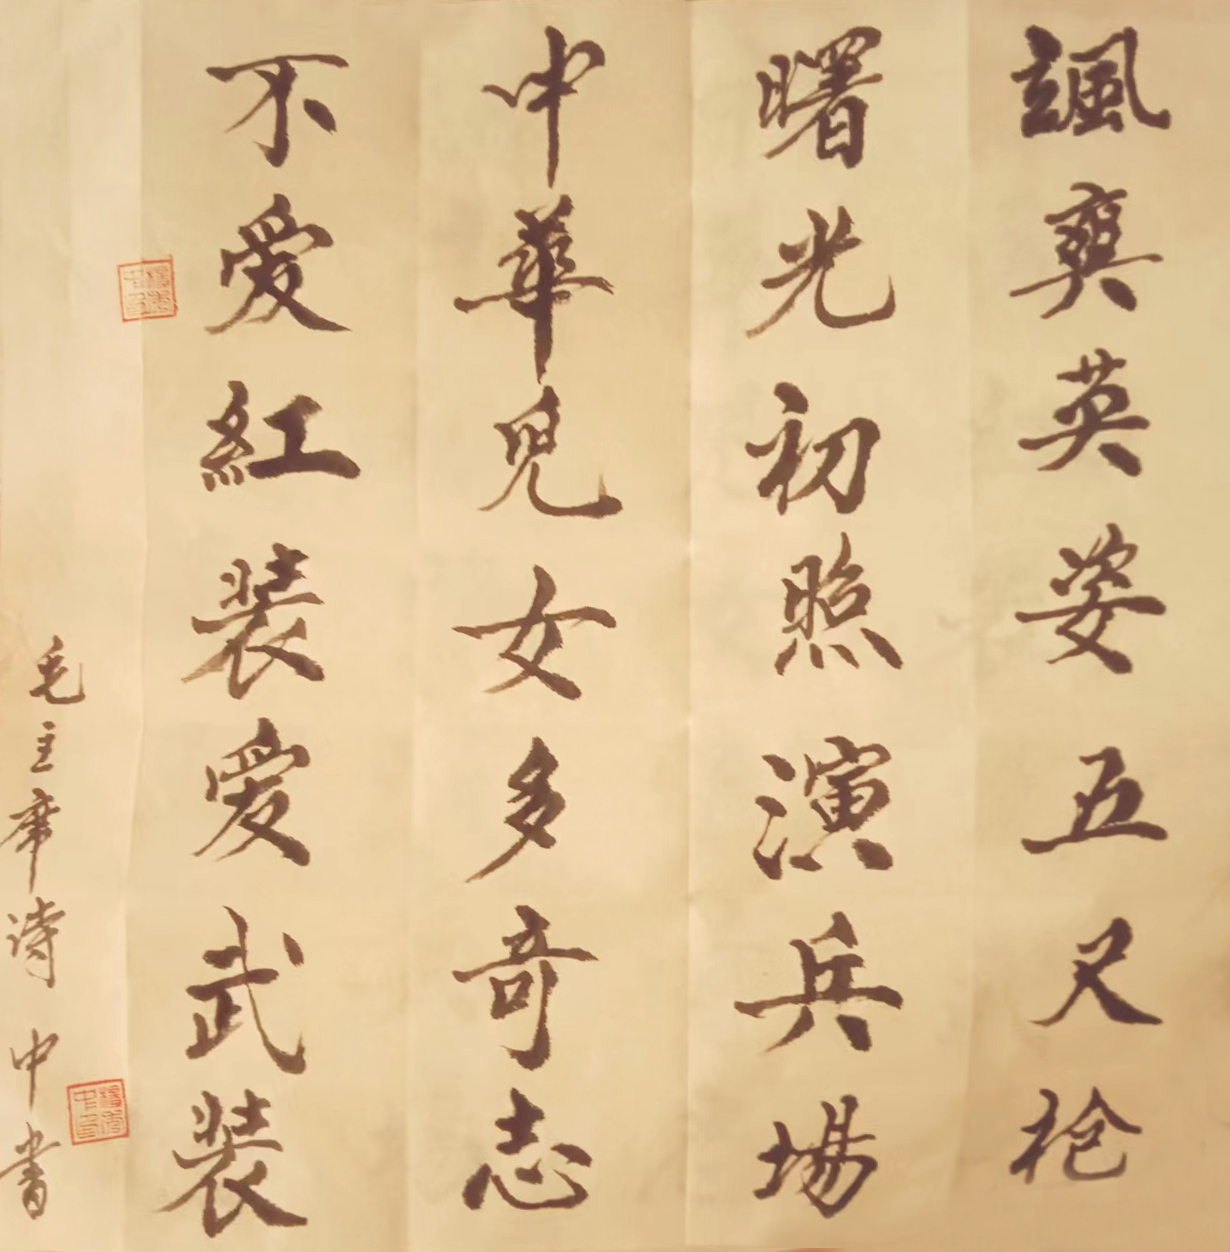 颯爽英姿五尺枪
曙光初照演兵場
中華兒女多奇志
不爱紅装爱武装
毛主席诗 中書